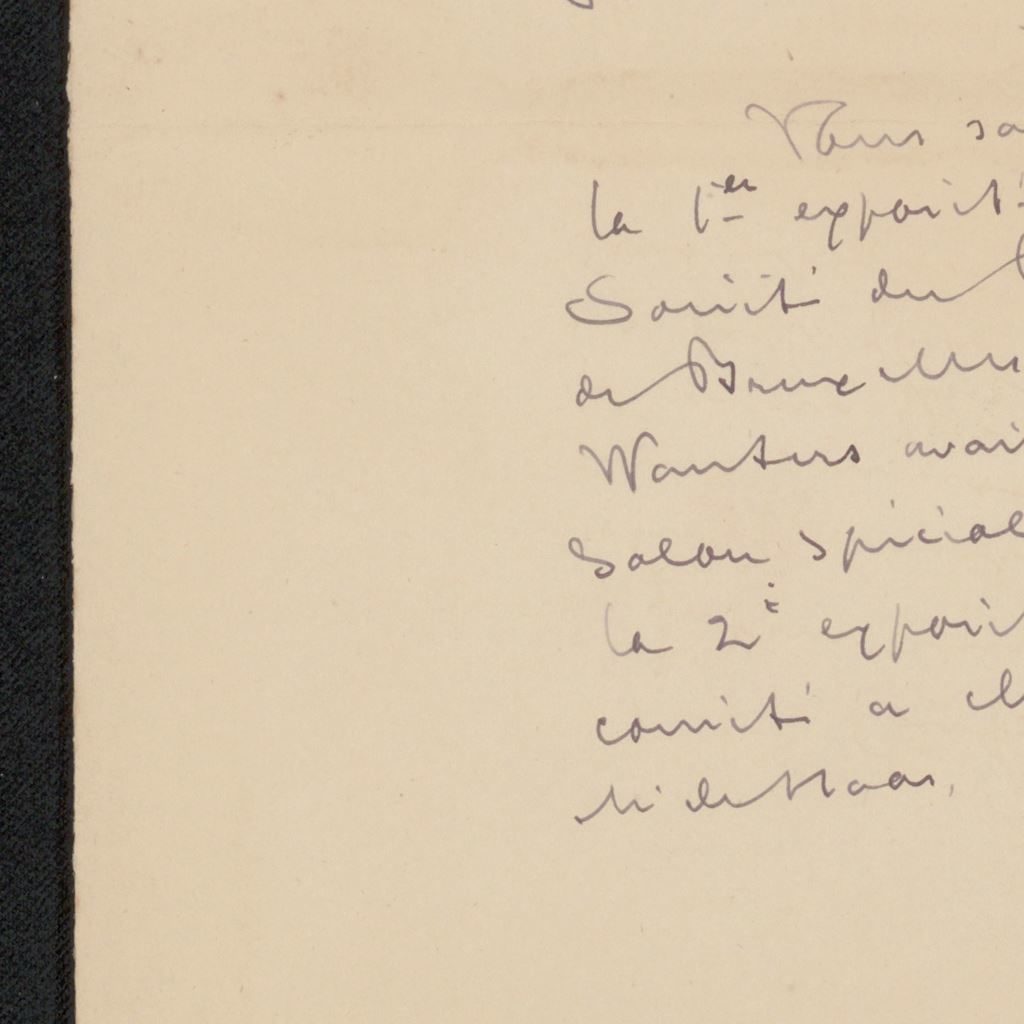 Vous sa
la 1er exposit
Société du
de Bruxelles
Wauters avai
Salon spécial
la 2e exposit
comité a
de Haas,